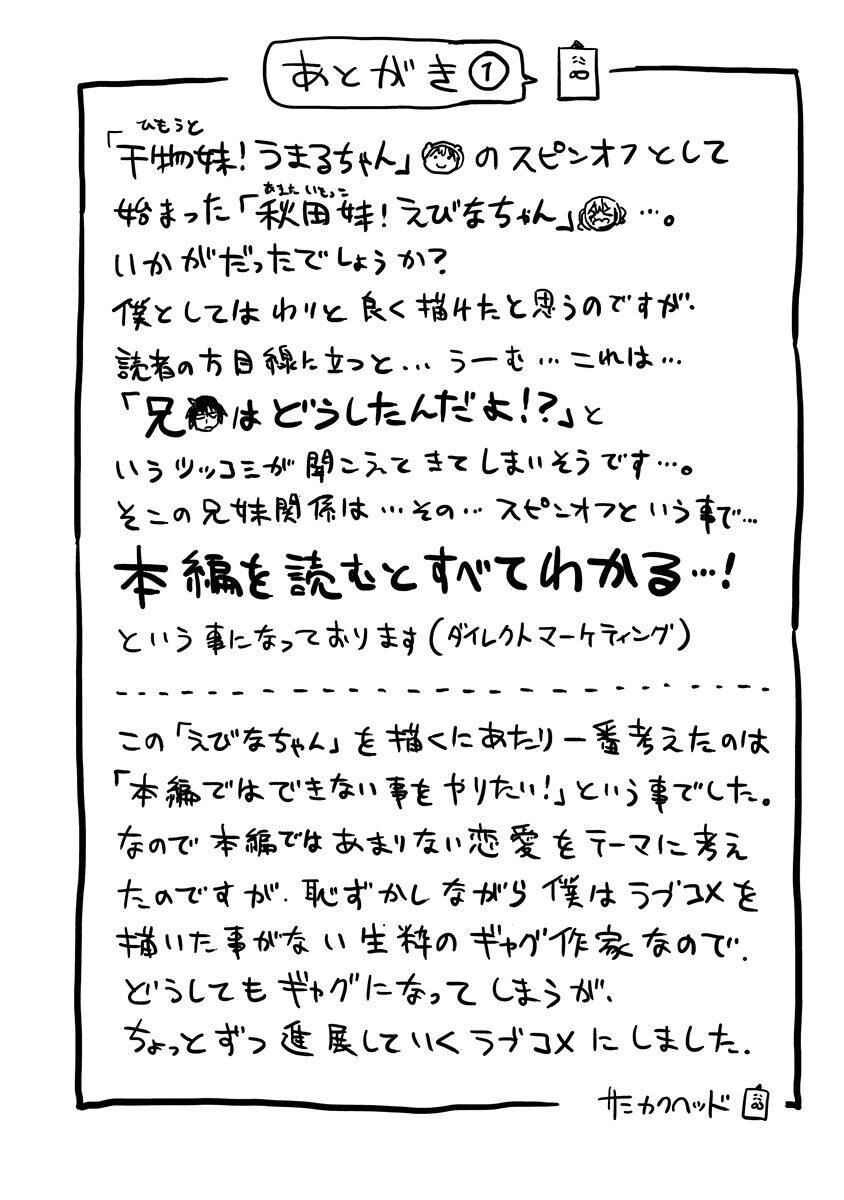 あとがき①
ひもうと
「干物妹!うまるちゃん」のスピンオフとして
あきたいもうと
始まった「秋田妹!えびなちゃん」…。
いかがだったでしょうか?
僕としてはわりと良く描けたと思うのですが、
読者の方目線に立つと…うーむ…これは…
「兄はどうしたんだよ!?」と
いうツッコミが聞こえてきてしまいそうです…。
そこの兄妹関係は…その…スピンオフという事で…
本編を読むとすべてわかる…!
という事になっております(ダイレクトマーケティング)
この「えびなちゃん」を描くにあたり一番考えたのは
「本編ではできない事をやりたい!」という事でした。
なので本編ではあまりない恋愛をテーマに考え
たのですが、恥ずかしながら僕はラブコメを
描いた事がない生粋のギャグ作家なので、
どうしてもギャグになってしまうが、
ちょっとずつ進展していくラブコメにしました。
サンカクヘッド